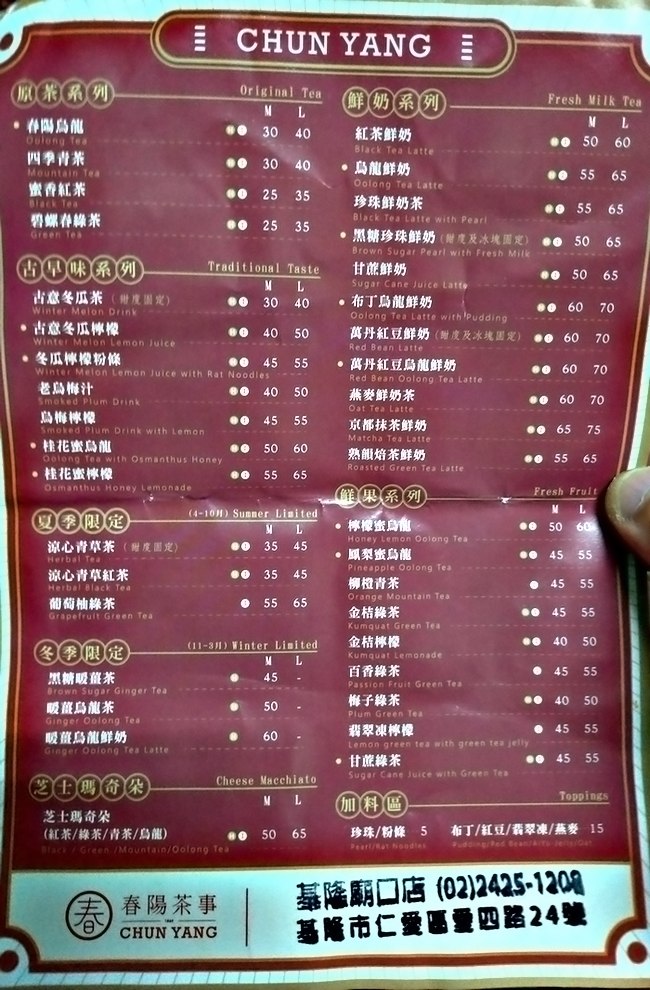 CHUN YANG
原茶系列 Original Tea
M L
春陽烏龍 30 40
Oolong Tea
四季青茶 30 40
Mountain Tea
蜜香紅茶 25 35
Black Tea
碧螺春綠茶 25 35
Green Tea
古早味系列 Traditional Taste
M L
古意冬瓜茶 (甜度固定) 30 40
Winter Melon Drink
古意冬瓜檸檬 40 50
Winter Melon Lemon Juice
冬瓜檸檬粉條 45 55
Winter Melon Lemon Juice with Rat Noodles
老烏梅汁 40 50
Smoked Plum Drink
烏梅檸檬 45 55
Smoked Plum Drink with Lemon
桂花蜜烏龍 50 60
Oolong Tea with Osmanthus Honey
桂花蜜檸檬 55 65
Osmanthus Honey Lemonade
夏季限定 (4-10月) Summer Limited
M L
涼心青草茶 (甜度固定) 35 45
Herbal Tea
涼心青草紅茶 35 45
Herbal Black Tea
葡萄柚綠茶 55 65
Grapefruit Green Tea
冬季限定 (11-3月) Winter Limited
M L
黑糖暖薑茶 45 -
Brown Sugar Ginger Tea
暖薑烏龍茶 50 -
Ginger Oolong Tea
暖薑烏龍鮮奶 60 -
Ginger Oolong Tea Latte
芝士瑪奇朵 Cheese Macchiato
M L
芝士瑪奇朵
(紅茶/綠茶/青茶/烏龍) 50 65
Black / Green /Mountain/Oolong Tea
鮮奶系列 Fresh Milk Tea
M L
紅茶鮮奶 50 60
Black Tea Latte
烏龍鮮奶 55 65
Oolong Tea Latte
珍珠鮮奶茶 55 65
Black Tea Latte with Pearl
黑糖珍珠鮮奶 (甜度及冰塊固定) 50 65
Brown Sugar Pearl with Fresh Milk
甘蔗鮮奶 50 65
Sugar Cane Juice Latte
布丁烏龍鮮奶 60 70
Oolong Tea Latte with Pudding
萬丹紅豆鮮奶 (甜度及冰塊固定) 60 70
Red Bean Latte
萬丹紅豆烏龍鮮奶 60 70
Red Bean Oolong Tea Latte
燕麥鮮奶茶 60 70
Oat Tea Latte
京都抹茶鮮奶 65 75
Matcha Tea Latte
熟韻焙茶鮮奶 55 65
Roasted Green Tea Latte
鮮果系列 Fresh Fruit
M L
檸檬蜜烏龍 50 60
Honey Lemon Oolong Tea
鳳梨蜜烏龍 45 55
Pineapple Oolong Tea
柳橙青茶 45 55
Orange Mountain Tea
金桔綠茶 45 55
Kumquat Green Tea
金桔檸檬 40 50
Kumquat Lemonade
百香綠茶 45 55
Passion Fruit Green Tea
梅子綠茶 40 50
Plum Green Tea
翡翠凍檸檬 45 55
Lemon green tea with green tea jelly
甘蔗綠茶 45 55
Sugar Cane Juice with Green Tea
加料區 Toppings
珍珠/粉條 5 布丁/紅豆/翡翠凍/燕麥 15
Pearl/Rat Noodles
春 春陽茶事
CHUN YANG
基隆廟口店 (02)2425-1208
基隆市仁愛區愛四路24號